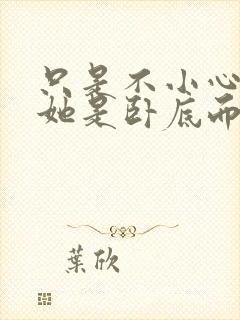 只是不小心
她是卧底而
葉欣